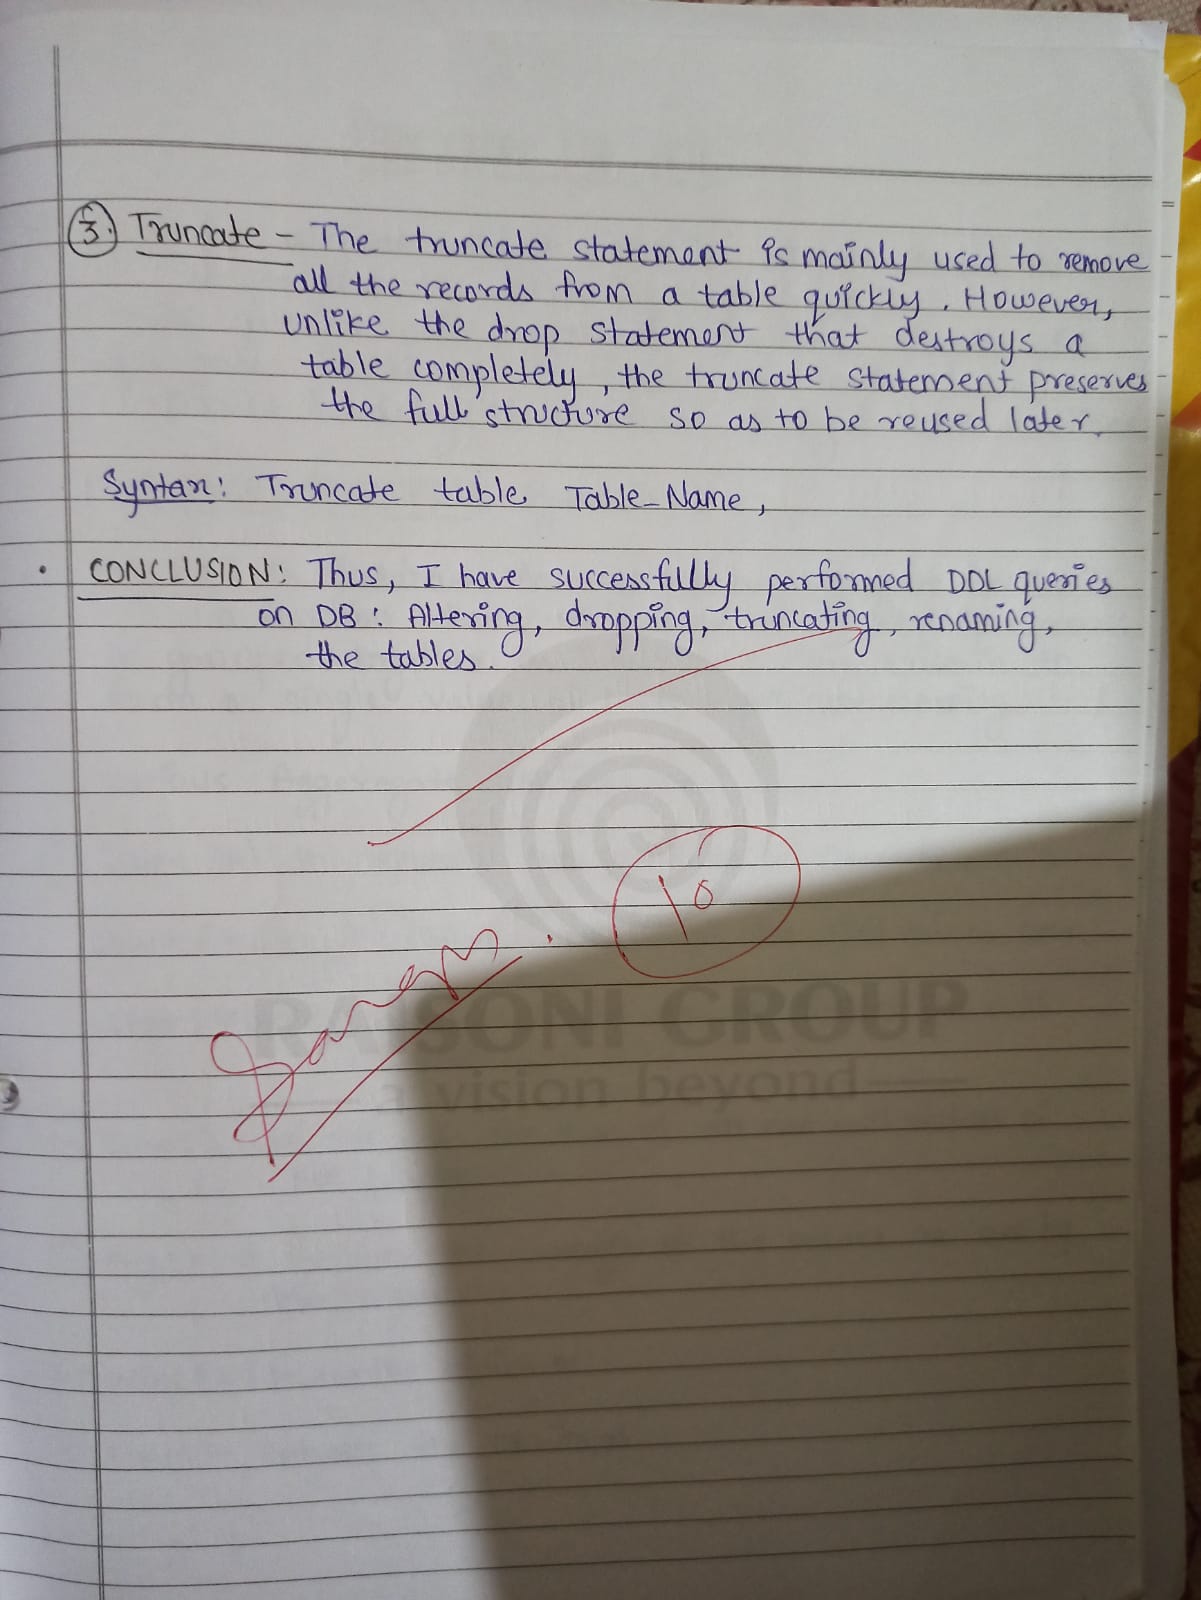 3. Truncate - The truncate statement is mainly used to remove
all the records from a table quickly. However,
unlike the drop statement that destroys a
table completely, the truncate statement preserves
the full structure so as to be reused later.
Syntax: Truncate table Table_Name,
• CONCLUSION: Thus, I have successfully performed DDL queries
on DB: Altering, dropping, truncating, renaming,
the tables.
10
RAISONI GROUP
a vision beyond